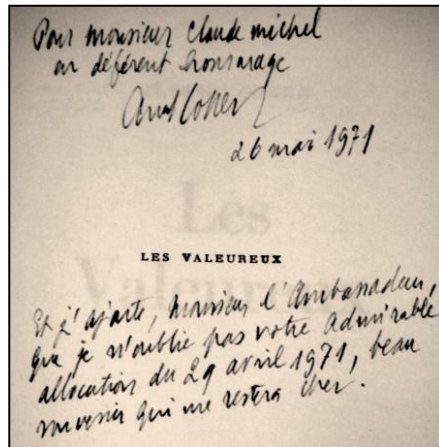 Pour monsieur Claude Michel
en déférent hommage
Albert Cohen
26 mai 1971
Les
Valeureux
LES VALEUREUX
Et j'ajoute, Monsieur l'Ambassadeur,
que je n'oublie pas votre admirable
allocution du 29 avril 1971, beau
souvenir qui me restera cher.